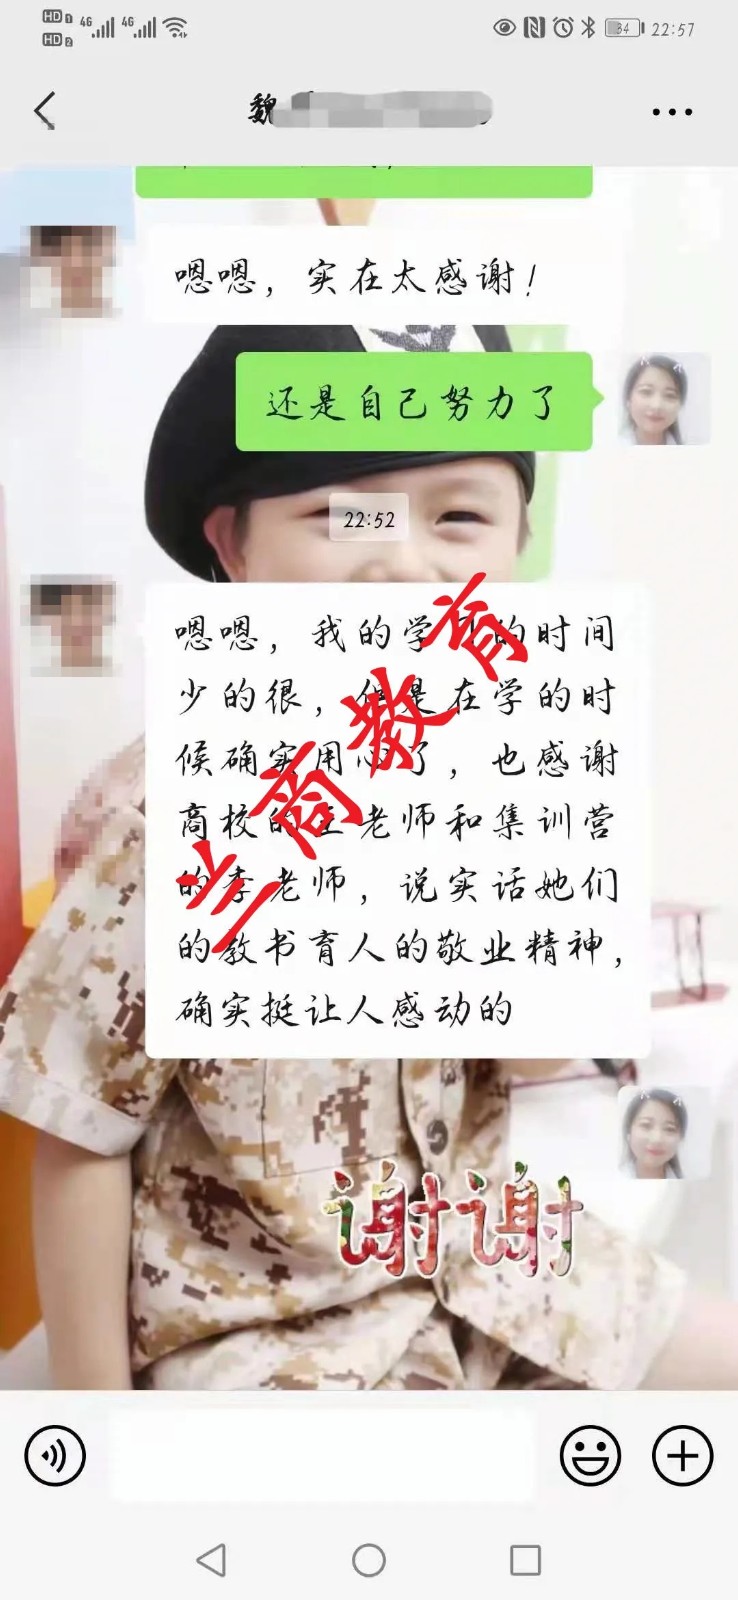 HD 1 4G 4G
HD 2
34 22:57
魏
嗯嗯，实在太感谢！
还是自己努力了
22:52
嗯嗯，我的学 的时间
少的很，但是在学的时
候确实用心了，也感谢
商校的 老师和集训营
的李老师，说实话她们
的教书育人的敬业精神，
确实挺让人感动的
兰商教育
谢谢